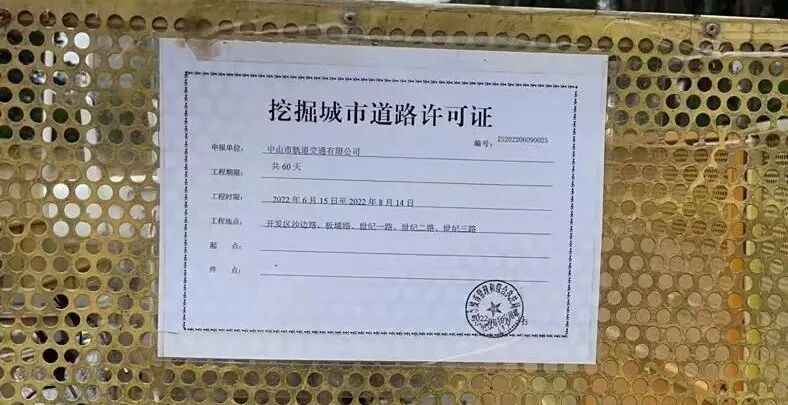 挖掘城市道路许可证
编号：25202206090025
申报单位：中山市轨道交通有限公司
工程期限：共 60 天
工程时限：2022 年 6 月 15 日至 2022 年 8 月 14 日
工程地点：开发区沙边路、板埔路、世纪一路、世纪二路、世纪三路
起 点：
终 点：